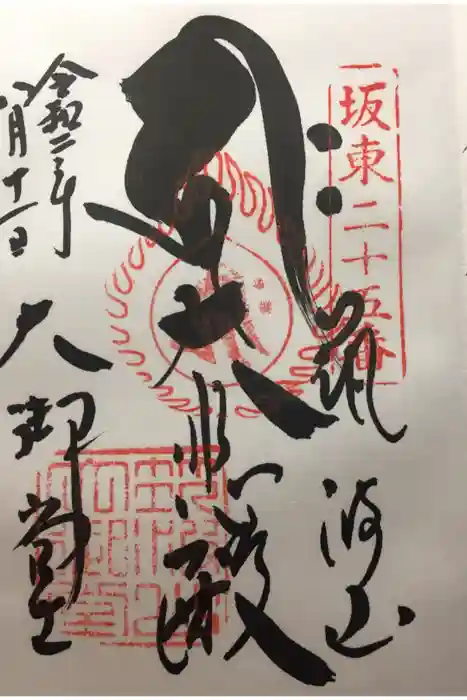 坂東二十五番
筑波山
大悲殿
令和二年
八月十一日
大御堂